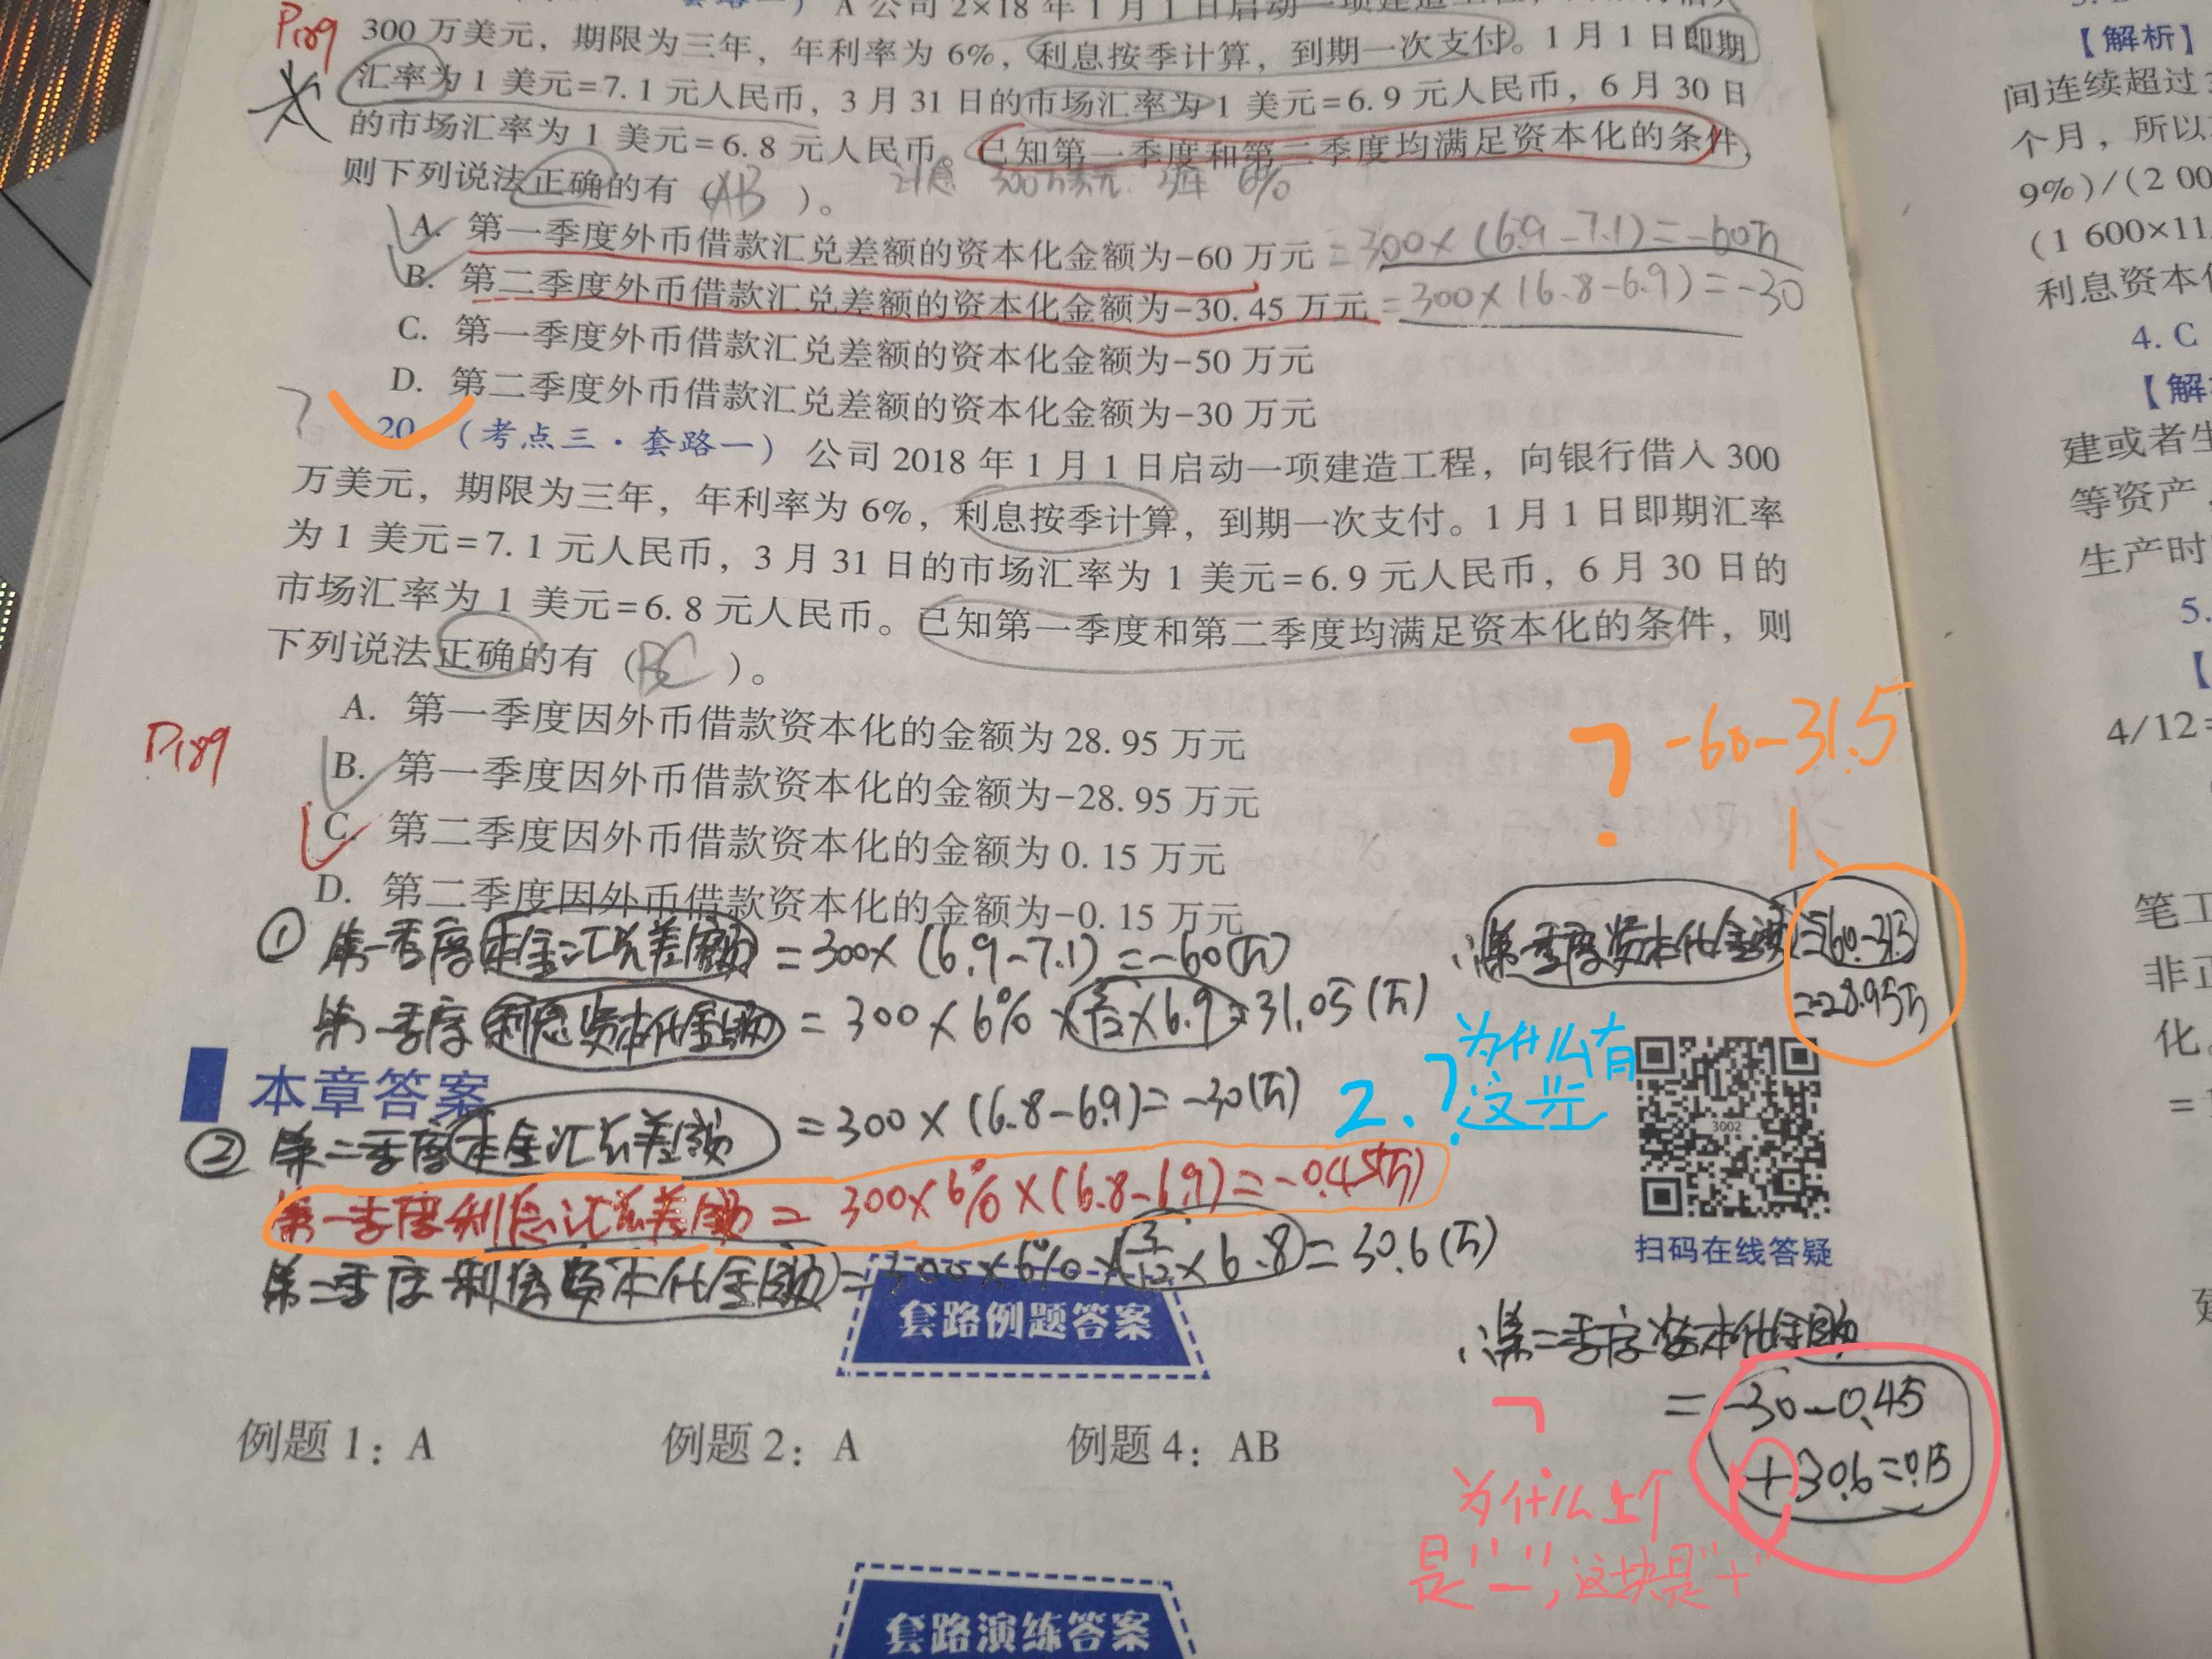 套路一）A 公司 2×18 年 1 月 1 日启动一项建造工程，
P189
300 万美元，期限为三年，年利率为 6%，利息按季计算，到期一次支付。1 月 1 日即期
汇率为 1 美元=7.1 元人民币，3 月 31 日的市场汇率为 1 美元=6.9 元人民币，6 月 30 日
的市场汇率为 1 美元=6.8 元人民币。已知第一季度和第二季度均满足资本化的条件，
则下列说法正确的有（AB）。
300万美元 3年 6%
A. 第一季度外币借款汇兑差额的资本化金额为-60 万元 =300×(6.9-7.1)=-60万
B. 第二季度外币借款汇兑差额的资本化金额为-30.45 万元 =300×(6.8-6.9)=-30
C. 第一季度外币借款汇兑差额的资本化金额为-50 万元
D. 第二季度外币借款汇兑差额的资本化金额为-30 万元
? 20 （考点三·套路一）公司 2018 年 1 月 1 日启动一项建造工程，向银行借入 300
万美元，期限为三年，年利率为 6%，利息按季计算，到期一次支付。1 月 1 日即期汇率
为 1 美元=7.1 元人民币，3 月 31 日的市场汇率为 1 美元=6.9 元人民币，6 月 30 日的
市场汇率为 1 美元=6.8 元人民币。已知第一季度和第二季度均满足资本化的条件，则
下列说法正确的有（BC）。
P189
A. 第一季度因外币借款资本化的金额为 28.95 万元
B. 第一季度因外币借款资本化的金额为-28.95 万元
C. 第二季度因外币借款资本化的金额为 0.15 万元
D. 第二季度因外币借款资本化的金额为-0.15 万元
? -60-31.5
1、
① 第一季度本金汇兑差额 =300×(6.9-7.1)=-60(万)
第一季度利息资本化金额 =300×6%×3/12×6.9=31.05(万)
∴第一季度资本化金额
=-28.95万
2.? 为什么有
这些
本章答案
② 第二季度本金汇兑差额 =300×(6.8-6.9)=-30(万)
第一季度利息汇兑差额 = 300×6%×(6.8-6.9)=-0.45(万)
第二季度利息资本化金额 =300×6%×3/12×6.8=30.6(万)
3002
扫码在线答疑
∴第二季度资本化金额
=-30-0.45
+30.6=0.15
?
为什么上个
是"-",这块是"+"
套路例题答案
例题 1：A
例题 2：A
例题 4：AB
套路演练答案
【解析】
间连续超过
个月，所以
9%)/(2 00
(1 600×11
利息资本
4. C
【解
建或者生
等资产
生产时
5.
【
4/12=
笔工
非正
化。
=